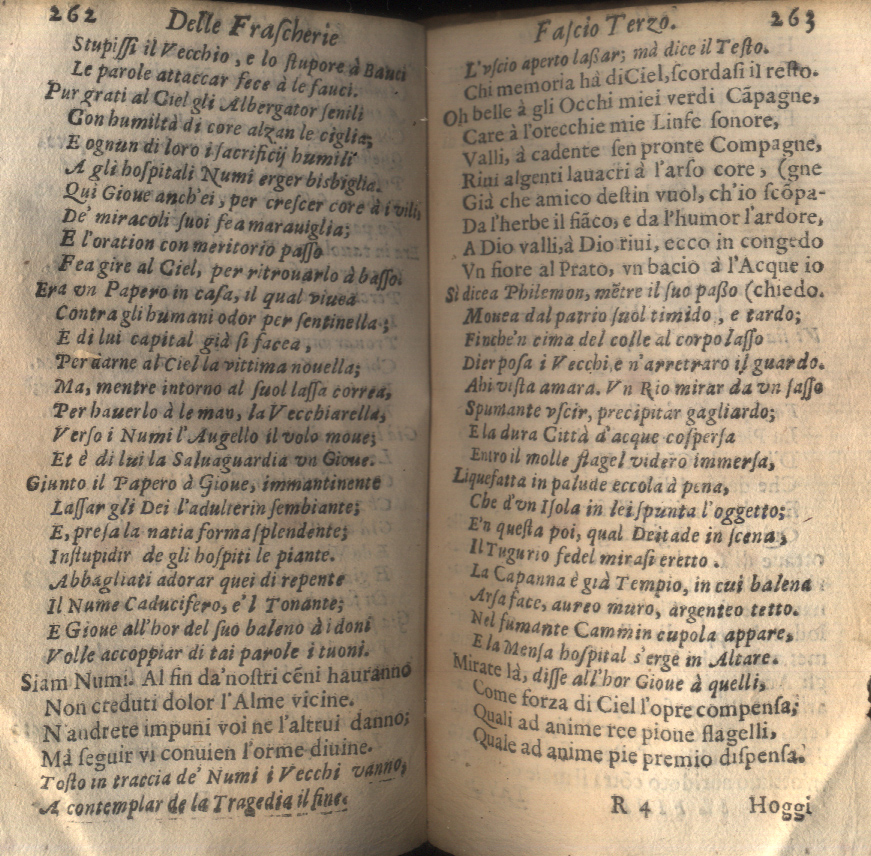 262 Delle Frascherie
Stupissi il Vecchio, e lo stupore à Bauci
Le parole attaccar fece à le fauci.
Pur grati al Ciel gli Albergator senili
Con humiltà di core alzan le ciglia;
E ognun di loro i sacrificij humili
A gli hospitali Numi erger bisbiglia.
Qui Gioue anch'ei, per crescer core à i vili,
De' miracoli suoi fea marauiglia;
E l'oration con meritorio passo
Fea gire al Ciel, per ritrouarlo à basso.
Era vn Papero in casa, il qual viuea
Contra gli humani odor per sentinella;
E di lui capital già si facea,
Per darne al Ciel la vittima nouella;
Ma, mentre intorno al suol lassa correa,
Per hauerlo à le man, la Vecchiarella,
Verso i Numi l'Augello il volo moue;
Et è di lui la Saluaguardia vn Gioue.
Giunto il Papero à Gioue, immantinente
Lassar gli Dei l'adulterin sembiante;
E, presa la natia forma splendente;
Instupidir de gli hospiti le piante.
Abbagliati adorar quei di repente
Il Nume Caducifero, e'l Tonante;
E Gioue all'hor del suo baleno à i doni
Volle accoppiar di tai parole i tuoni.
Siam Numi. Al fin da'nostri cēni hauranno
Non creduti dolor l'Alme vicine.
N'andrete impuni voi ne l'altrui danno;
Mà seguir vi conuien l'orme diuine.
Tosto in traccia de' Numi i Vecchi vanno,
A contemplar de la Tragedia il fine.
Fascio Terzo. 263
L'vscio aperto laßar; mà dice il Testo.
Chi memoria hà di Ciel, scordasi il resto.
Oh belle à gli Occhi miei verdi Cāpagne,
Care à l'orecchie mie Linfe sonore,
Valli, à cadente sen pronte Compagne,
Riui algenti lauacri à l'arso core, (gne
Già che amico destin vuol, ch'io scōpa-
Da l'herbe il fiāco, e da l'humor l'ardore,
A Dio valli, à Dio riui, ecco in congedo
Vn fiore al Prato, vn bacio à l'Acque io
Sì dicea Philemon, mētre il suo paßo (chiedo.
Mouea dal patrio suol timido, e tardo;
Finche'n cima del colle al corpo lasso
Dier posa i Vecchi, e n'arretraro il guardo.
Ahi vista amara. Vn Rio mirar da vn sasso
Spumante vscir, precipitar gagliardo;
E la dura Città d'acque cospersa
Entro il molle flagel videro immersa,
Liquefatta in palude eccola à pena,
Che d'vn Isola in lei spunta l'oggetto;
E'n questa poi, qual Deitade in scena,
Il Tugurio fedel mirasi eretto.
La Capanna è già Tempio, in cui balena
Arsa face, aureo muro, argenteo tetto.
Nel fumante Cammin cupola appare,
E la Mensa hospital s'erge in Altare.
Mirate là, disse all'hor Gioue à quelli,
Come forza di Ciel l'opre compensa;
Quali ad anime ree pioue flagelli,
Quale ad anime pie premio dispensa.
R 4 Hoggi